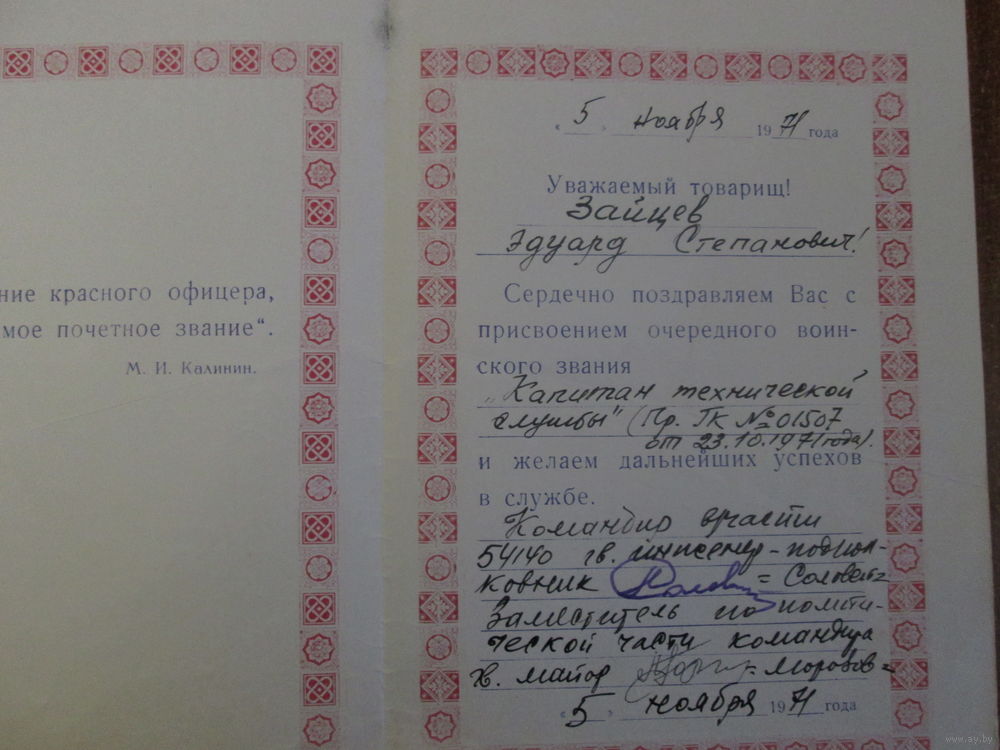 ние красного офицера,
мое почетное звание“.
М. И. Калинин.
„5“ ноября 1971 года
Уважаемый товарищ!
Зайцев
Эдуард Степанович!
Сердечно поздравляем Вас с
присвоением очередного воин-
ского звания
„Капитан технической
службы" (Пр. ГК № 01507
от 23.10.1971 года).
и желаем дальнейших успехов
в службе.
Командир в/части
54140 гв. инженер-подпол-
ковник =Соловей=
Заместитель по полити-
ческой части командира
гв. майор =Морозов=
„5“ ноября 1971 года
www.ay.by